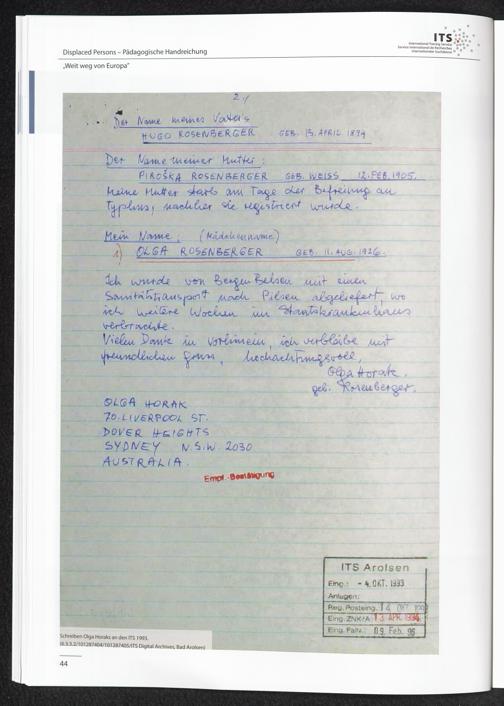 Displaced Persons – Pädagogische Handreichung
ITS
International Tracing Service
Service International de Recherches
Internationaler Suchdienst
„Weit weg von Europa“
2/
Der Name meines Vaters
HUGO ROSENBERGER GEB. 13. APRIL 1894
Der Name meiner Mutter:
PIROŠKA ROSENBERGER GEB. WEISS 12. FEB. 1905.
Meine Mutter starb am Tage der Befreiung an
Typhus, nachher sie registriert wurde.
Mein Name: (Mädchenname)
1) OLGA ROSENBERGER GEB. 11. AUG. 1926.
Ich wurde von Bergen Belsen mit einen
Sanitätstransport nach Pilsen abgeliefert, wo
ich weitere Wochen im Staatskrankenhaus
verbrachte.
Vielen Dank in vorhinein, ich verbleibe mit
freundlichen gruss, hochachtungsvoll,
Olga Horak.
geb. Rosenberger.
OLGA HORAK
70. LIVERPOOL ST.
DOVER HEIGHTS
SYDNEY N.S.W. 2030
AUSTRALIA.
Empf.-Bestätigung
ITS Arolsen
Eing.: - 4. OKT. 1993
Anlagen:
Reg. Posteing. 14. OKT.
Eing. ZNK/A 13. APR. 1994
Eing. Fallv.: 09. Feb. 95
Schreiben Olga Horaks an den ITS 1993,
(6.3.3.2/101287404/101287405/ITS Digital Archives, Bad Arolsen)
44